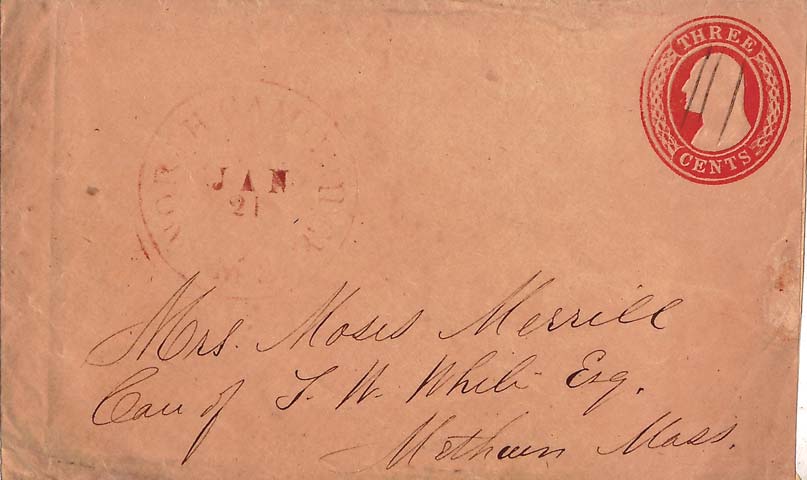 THREE
CENTS
NORTH CAMBRIDGE
JAN
21
Mrs. Moses Merrill
Care of S. W. White Esq.
Methuen Mass.